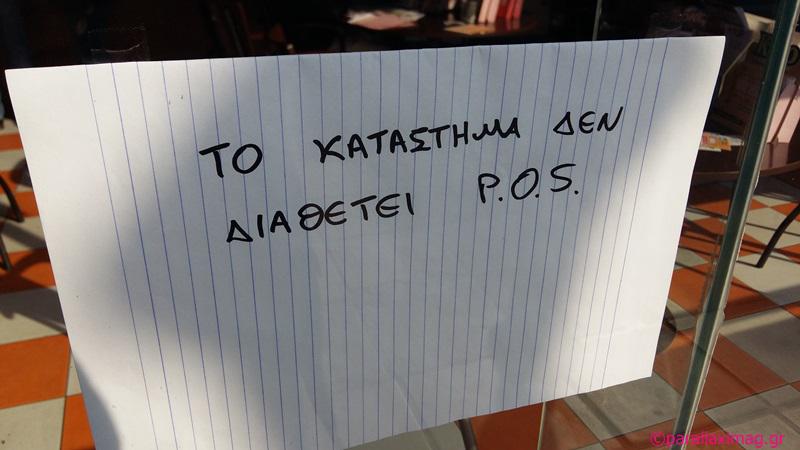 ΤΟ ΚΑΤΑΣΤΗΜΑ ΔΕΝ
ΔΙΑΘΕΤΕΙ P.O.S.
©parallaximag.gr